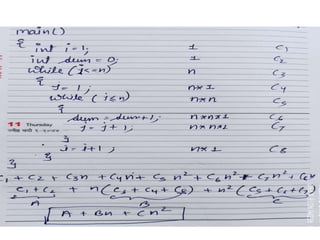 main()
{ int i=1; 1 C1
int sum = 0; 1 C2
while (i<=n) n C3
{ j = 1; n×1 C4
while (j≤n) n×n C5
{
sum = sum+1; n×n×1 C6
11 Thursday j = j+1; n×n×1 C7
}
i = i+1; n×1 C8
}
}
C1 + C2 + C3n + C4n + C5 n² + C6 n² + C7 n² + C8n
C1 + C2 + n(C3 + C4 + C8) + n² (C5 + C6 + C7)
A B C
A + Bn + Cn²